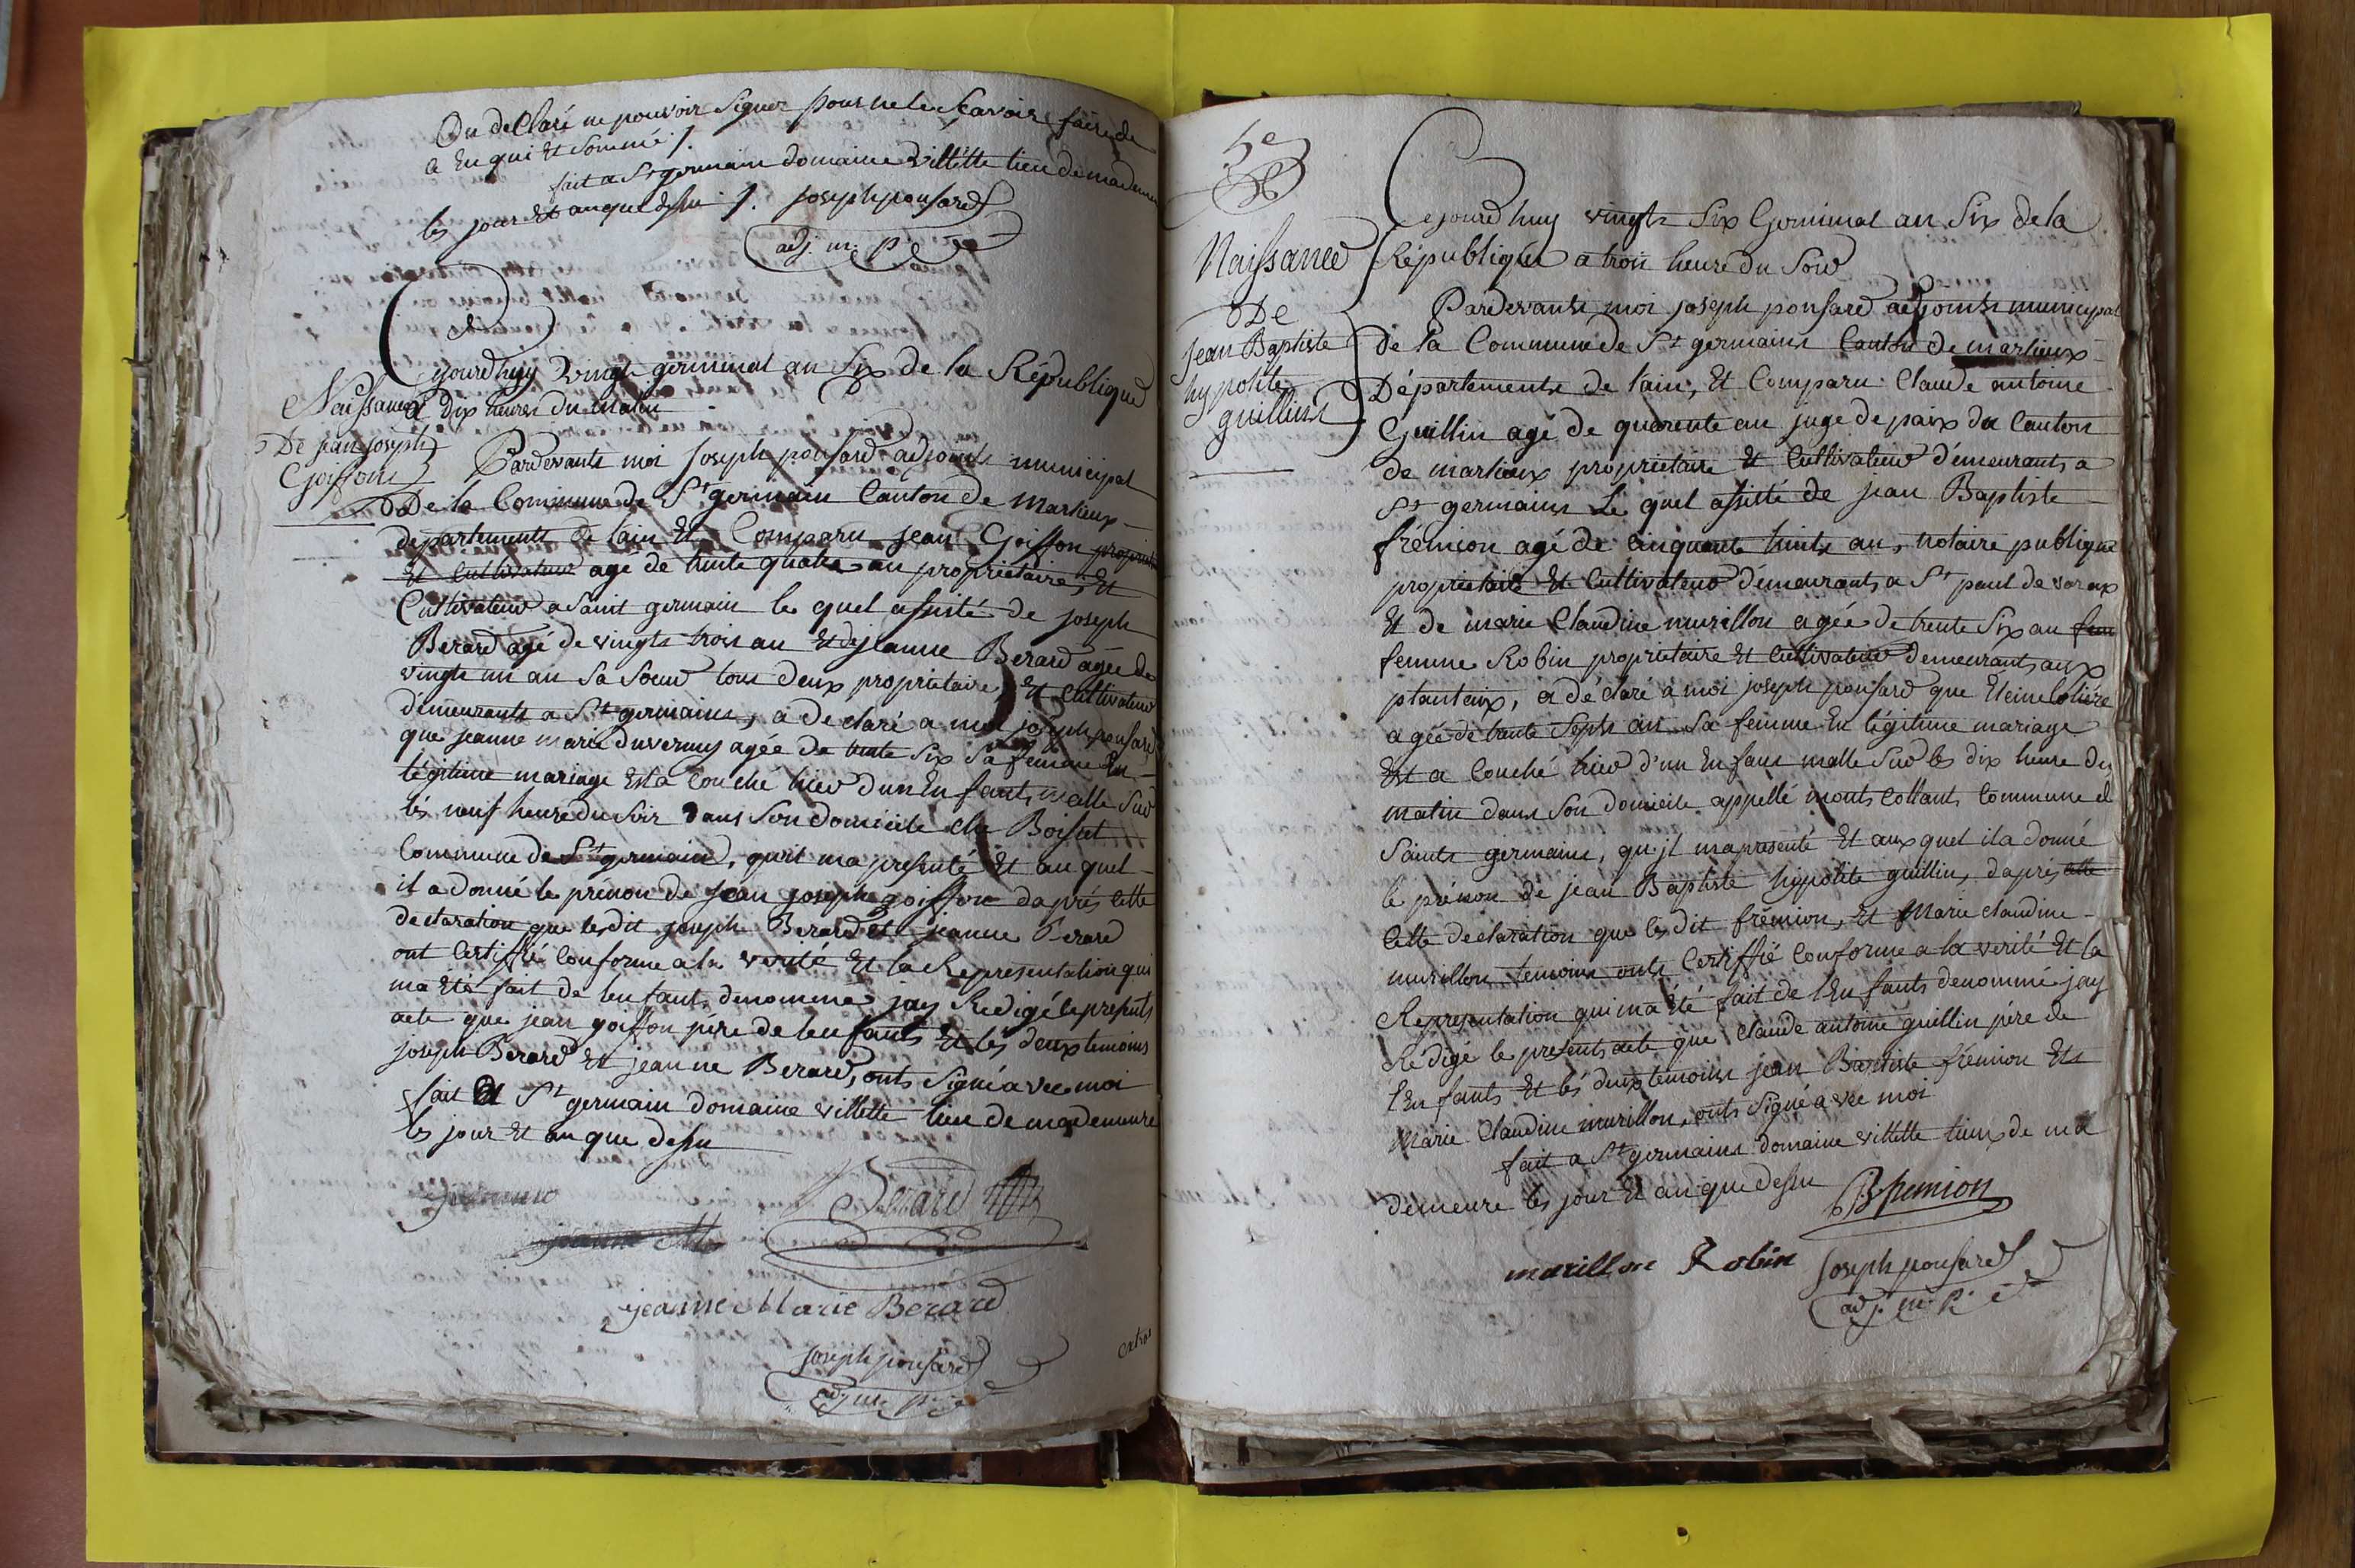 On declaré ne pouvoir Signer pour ne le Scavoir faire de
a Enqui Et Sommé /.
fait a St germain domaine villette lieu de ma demeure
les jour Et an que dessu /. joseph ponsard
adj. m. p.
Cejourdhuy vingt germinal an Six de la République
a dix heures du matin
Naissance
De jean joseph
Goiffon
Pardevants moi joseph ponsard adjoints municipal
De la Commune de St germain Canton de Marlieux
departements de lain Et Comparu jean Goiffon propriet
Et Cultivateur agé de trente quatre an propriétaire, Et
Cultivateur a Sanit germain le quel assisté de joseph
Berard agé de vingts trois an Et de jeanne Berard agée de
vingts un an Sa Soeur tous deux propriétaire Et Cultivateur
démeurants a St germains, a declaré a moi joseph ponsard
que jeanne marie duvernay agée de trente Six Sa femme En
légitime mariage Est a Couché hier dun Enfants malle Sur
les neuf heure du Soir dans Son domicile du Boisset
Commune de St germains, quil ma presenté Et au quel
il a donné le prénon de jean joseph goiffon daprés Cette
declaration que lesdit joseph Berard et jeanne Berard
ont Certiffié Conforme a la verité Et la Representation qui
ma Eté fait de lenfants denommé jay Redigé le presents
acte que jean goiffon pére de lenfants Et les deux temoins
joseph Berard Et jeanne Berard, onts Signé a vec moi
fait a St germain domaine villette lieu de ma demeure
les jour Et an que dessu
jeanne
Berard
jeanne M
jeanne Marie Berard
joseph ponsard
adj. m. p.
5e
Naissance
De
jean Baptiste
hypolite
guillin
Cejourdhuy vingts Six Germinal an Six de la
République a trois heure du Soir
Pardevants moi joseph ponsard adjoints municipal
de la Commune de St germains Canton de marlieux
Départements de lain, Et Comparu Claude antoine
Guillin agé de quarente an juge de paix du Canton
de marlieux propriétaire Et Cultivateur démeurants a
St germains Le quel assitté de jean Baptiste
frémion agé de Cinquante huits an, notaire publique
propriétaire Et Cultivateur démeurants a St paul de varax
Et de marie Claudine murillon agée de trente Six an fem
femme Robin propriétaire Et Cultivateur demeurants aux
plantaix, a déclaré a moi joseph ponsard que Eleine Coliére
agée de trente Septs an Sa femme En légitime mariage
Est a Couché hier d'un Enfans malle Sur les dix heure du
matin dans Son domicile appellé monts Collants Commune de
Saints germains, qu'jl ma presenté Et aux quel il a donné
le prénon de jean Baptiste hypolite guillin, daprés cette
Cette declaration que lesdit frémion, Et Marie claudine
murillon temoins onts Certiffié Conforme a la verité Et la
Representation qui ma Eté fait de lEnfants denommé jay
Rédigé le presents acte que Claude antoine guillin pére de
lEnfants Et les deux temoins jean Baptiste frémion Et
Marie Claudine murillon, onts Signé a vec moi
fait a St germains domaine villette lieux de ma
demeure les jour Et an que dessu
B fremion
murillon Robin joseph ponsard
adj. m. p.